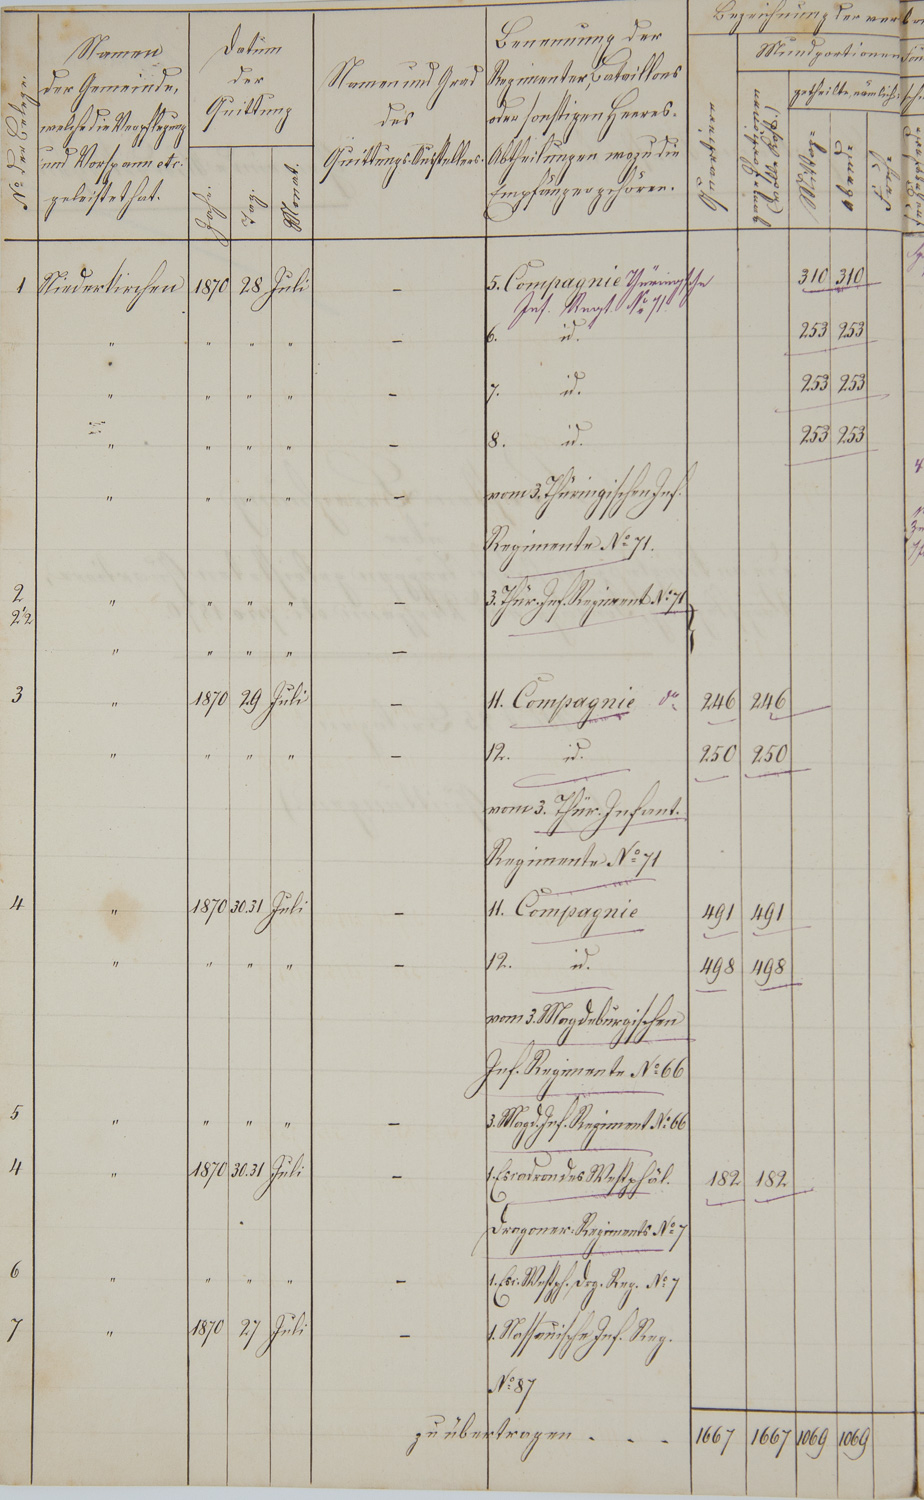 Bezeichnung der
Mundportionen
getheilte, nämlich:
No der Belege.
Namen
der Gemeinde,
welche die Verpflegung
und Vorspann etc.
geleistet hat.
Datum
der
Quittung
Jahr.
Tag.
Monat.
Namen und Grad
des
Quittungs-Ausstellers.
Benennung der
Regimenter, Bataillons
oder sonstigen Heeres-
Abtheilungen wozu die
Empfänger gehören.
Quartier
Mittag-
Abend-
1 Niederkirchen 1870 28 Juli — 5. Compagnie Thüringische 310 310
Inf. Regt. No 71.
" " " " — 6. id. 253 253
" " " " — 7. id. 253 253
" " " " — 8. id. 253 253
" " " " — vom 3. Thüringischen Inf.
Regimente No 71.
2 " " " " — 3. Thür. Inf. Regiment No 71
2 1/2
" " " " —
3 " 1870 29 Juli — 11. Compagnie do 246 246
" " " " — 12. id. 250 250
vom 3. Thür. Infant.
Regimente No 71
4 " 1870 30.31 Juli — 11. Compagnie 491 491
" " " " — 12. id. 498 498
vom 3. Magdeburgischen
Inf. Regimente No 66
5 " " " " — 3. Magd. Inf. Regiment No 66
4 " 1870 30.31 Juli — 1. Escadron des Westphäl. 182 182
Dragoner-Regiments No 7
6 " " " " — 1. Esc. Westph. Drg. Reg. No 7
7 " 1870 27 Juli — 1. Nassauische Inf. Reg.
No 87
zu übertragen . . . 1667 1667 1069 1069